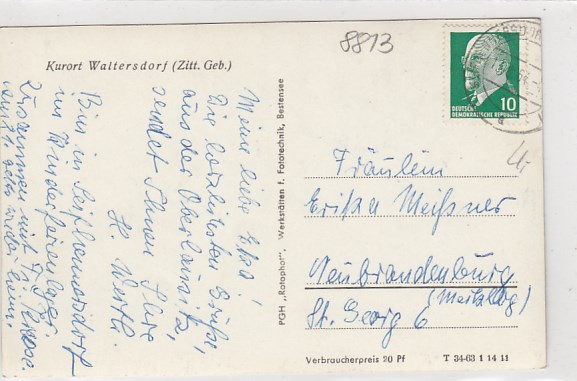 8813
Kurort Waltersdorf (Zitt. Geb.)
Meine liebe
Die herzlichsten Grüße,
aus der Oberlausitz,
sendet Ihnen Ihre
H.
Bin in Seifhennersdorf
im Kinderferienlager
zusammen mit
PGH „Rotophot", Werkstätten f. Fototechnik, Bestensee
DEUTSCHE
DEMOKRATISCHE REPUBLIK
10
Fräulein
Erika Meißner
Neubrandenburg
(Mecklbg)
St. Georg 6
Verbraucherpreis 20 Pf
T 34-63 1 14 11